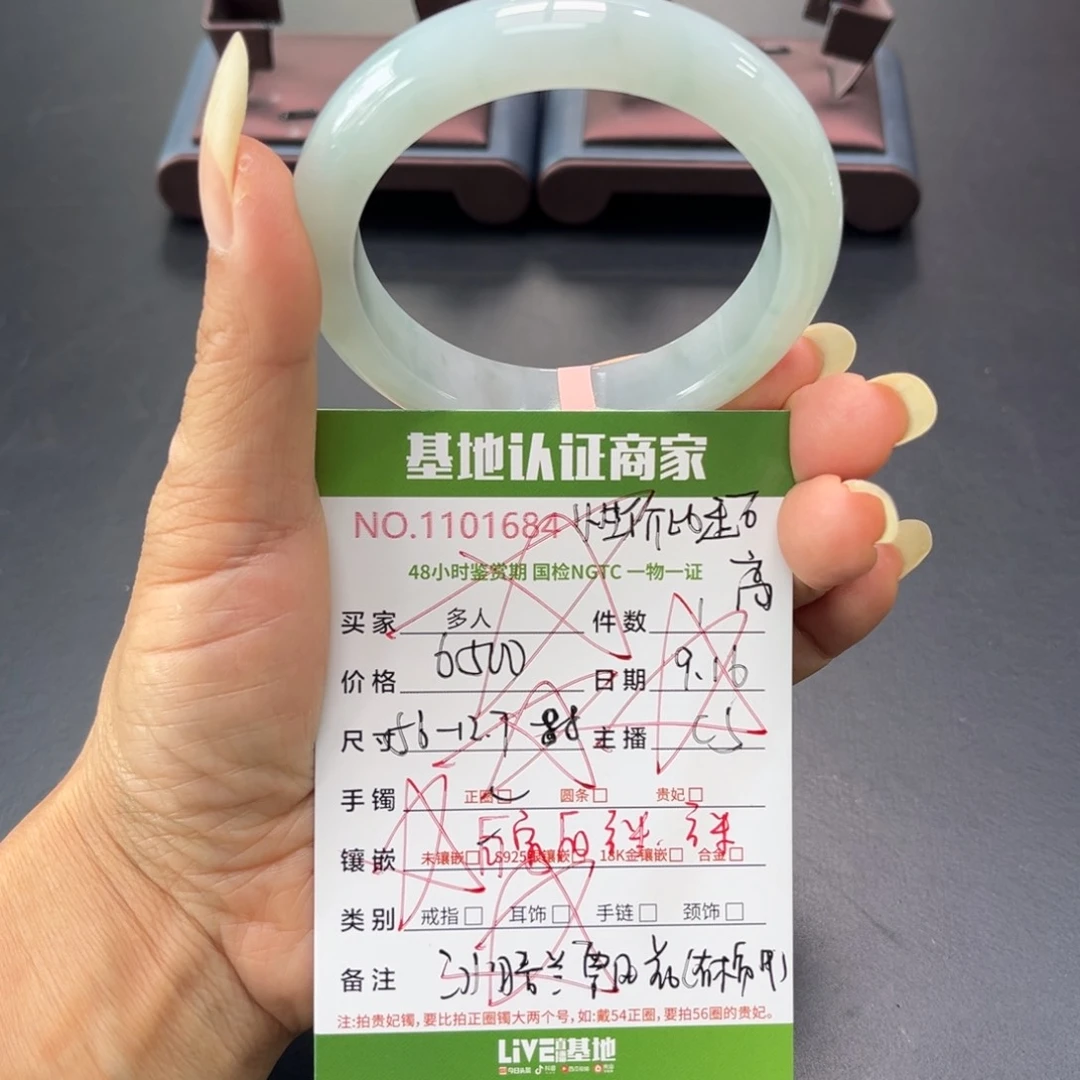 基地认证商家
NO.1101684 性价比
高
48小时鉴赏期 国检NGTC 一物一证
买家 多人 件数 1
价格 6500 日期 9.16
尺寸 56-12.7 主播
手镯 正圈□ 圆条□ 贵妃□
镶嵌 未镶嵌□ S925银镶嵌□ 18K金镶嵌□ 合金□
类别 戒指□ 耳饰□ 手链□ 颈饰□
备注
注:拍贵妃镯,要比拍正圈镯大两个号,如:戴54正圈,要拍56圈的贵妃。
LiVE直播基地
今日头条 抖音